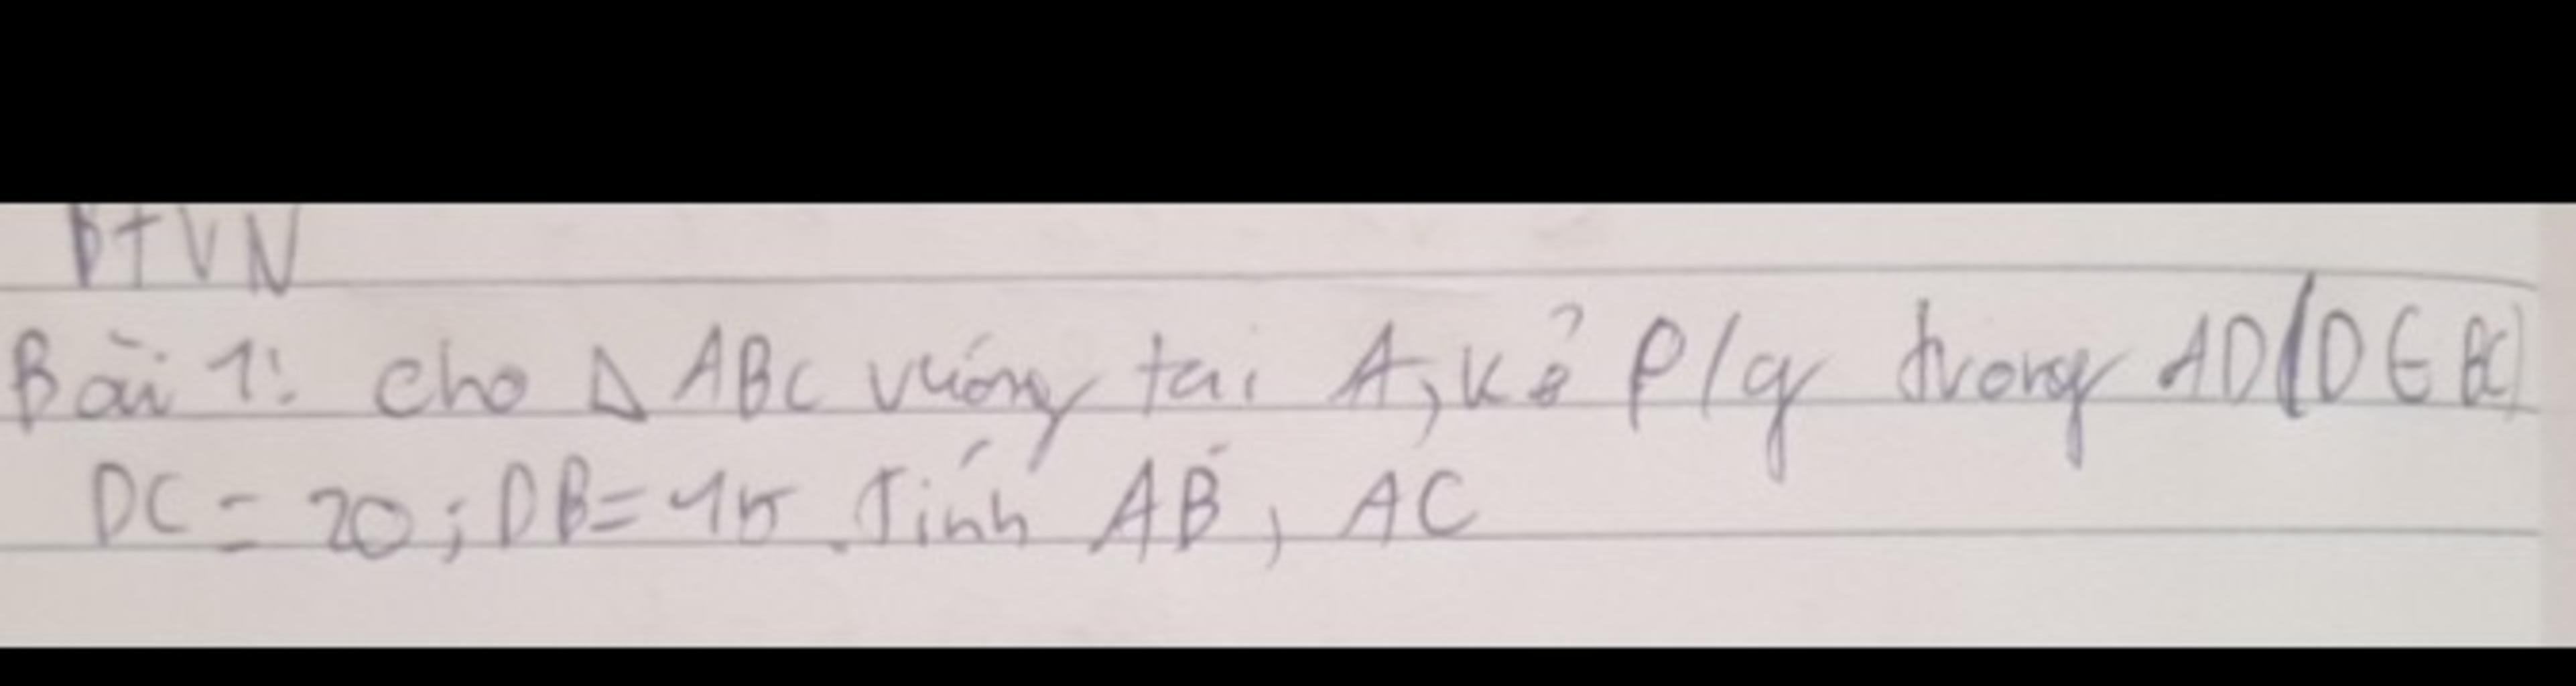 BTVN
Bài 1: Cho Δ ABC vuông tại A, kẻ p/g trong AD (D ∈ BC)
DC = 20 ; DB = 15. Tính AB, AC